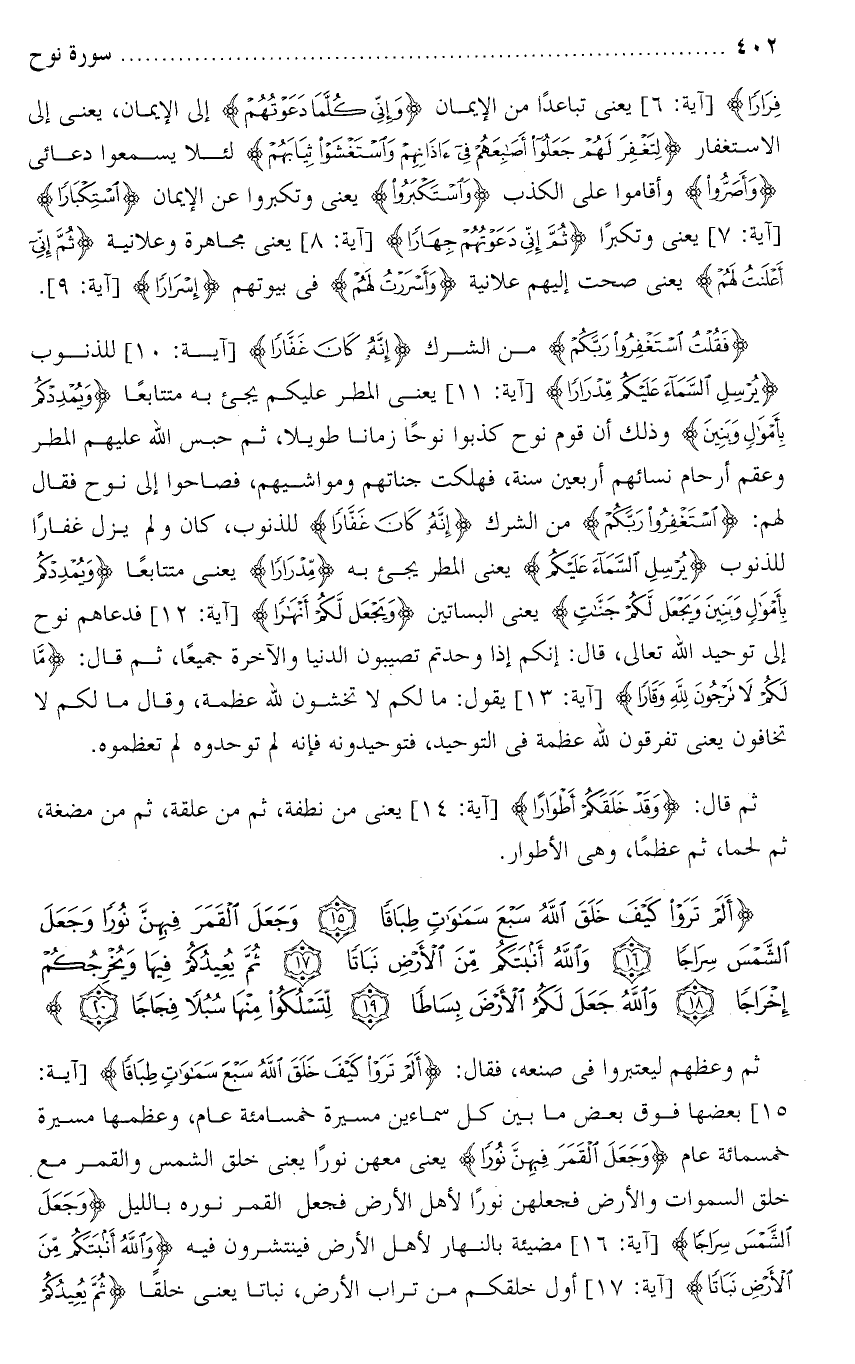 ٤٠٢ ........................................................................ سورة نوح
فِرَارًا﴾ [آية: ٦] يعنى تباعدًا من الإيمان ﴿وَإِنِّي كُلَّمَا دَعَوْتُهُمْ﴾ إلى الإيمان، يعنى إلى
الاستغفار ﴿لِتَغْفِرَ لَهُمْ جَعَلُوٓا۟ أَصَٰبِعَهُمْ فِىٓ ءَاذَانِهِمْ وَٱسْتَغْشَوْا۟ ثِيَابَهُمْ﴾ لئلا يسمعوا دعائى
﴿وَأَصَرُّوا۟﴾ وأقاموا على الكذب ﴿وَٱسْتَكْبَرُوا۟﴾ يعنى وتكبروا عن الإيمان ﴿ٱسْتِكْبَارًا﴾
[آية: ٧] يعنى وتكبرًا ﴿ثُمَّ إِنِّى دَعَوْتُهُمْ جِهَارًا﴾ [آية: ٨] يعنى مجاهرة وعلانية ﴿ثُمَّ إِنِّىٓ
أَعْلَنتُ لَهُمْ﴾ يعنى صحت إليهم علانية ﴿وَأَسْرَرْتُ لَهُمْ﴾ فى بيوتهم ﴿إِسْرَارًا﴾ [آية: ٩].
﴿فَقُلْتُ ٱسْتَغْفِرُوا۟ رَبَّكُمْ﴾ من الشرك ﴿إِنَّهُۥ كَانَ غَفَّارًا﴾ [آية: ١٠] للذنوب
﴿يُرْسِلِ ٱلسَّمَآءَ عَلَيْكُم مِّدْرَارًا﴾ [آية: ١١] يعنى المطر عليكم يجئ به متتابعًا ﴿وَيُمْدِدْكُم
بِأَمْوَٰلٍ وَبَنِينَ﴾ وذلك أن قوم نوح كذبوا نوحًا زمانا طويلا، ثم حبس الله عليهم المطر
وعقم أرحام نسائهم أربعين سنة، فهلكت جناتهم ومواشيهم، فصاحوا إلى نوح فقال
لهم: ﴿ٱسْتَغْفِرُوا۟ رَبَّكُمْ﴾ من الشرك ﴿إِنَّهُۥ كَانَ غَفَّارًا﴾ للذنوب، كان ولم يزل غفارًا
للذنوب ﴿يُرْسِلِ ٱلسَّمَآءَ عَلَيْكُم﴾ يعنى المطر يجئ به ﴿مِّدْرَارًا﴾ يعنى متتابعًا ﴿وَيُمْدِدْكُم
بِأَمْوَٰلٍ وَبَنِينَ وَيَجْعَل لَّكُمْ جَنَّٰتٍ﴾ يعنى البساتين ﴿وَيَجْعَل لَّكُمْ أَنْهَٰرًا﴾ [آية: ١٢] فدعاهم نوح
إلى توحيد الله تعالى، قال: إنكم إذا وحدتم تصيبون الدنيا والآخرة جميعًا، ثم قال: ﴿مَّا
لَكُمْ لَا تَرْجُونَ لِلَّهِ وَقَارًا﴾ [آية: ١٣] يقول: ما لكم لا تخشون لله عظمة، وقال ما لكم لا
تخافون يعنى تفرقون لله عظمة فى التوحيد، فتوحيدونه فإنه لم توحدوه لم تعظموه.
ثم قال: ﴿وَقَدْ خَلَقَكُمْ أَطْوَارًا﴾ [آية: ١٤] يعنى من نطفة، ثم من علقة، ثم من مضغة،
ثم لحما، ثم عظمًا، وهى الأطوار.
﴿أَلَمْ تَرَوْا۟ كَيْفَ خَلَقَ ٱللَّهُ سَبْعَ سَمَٰوَٰتٍ طِبَاقًا ١٥ وَجَعَلَ ٱلْقَمَرَ فِيهِنَّ نُورًا وَجَعَلَ
ٱلشَّمْسَ سِرَاجًا ١٦ وَٱللَّهُ أَنۢبَتَكُم مِّنَ ٱلْأَرْضِ نَبَاتًا ١٧ ثُمَّ يُعِيدُكُمْ فِيهَا وَيُخْرِجُكُمْ
إِخْرَاجًا ١٨ وَٱللَّهُ جَعَلَ لَكُمُ ٱلْأَرْضَ بِسَاطًا ١٩ لِّتَسْلُكُوا۟ مِنْهَا سُبُلًا فِجَاجًا ٢٠ ﴾
ثم وعظهم ليعتبروا فى صنعه، فقال: ﴿أَلَمْ تَرَوْا۟ كَيْفَ خَلَقَ ٱللَّهُ سَبْعَ سَمَٰوَٰتٍ طِبَاقًا﴾ [آية:
١٥] بعضها فوق بعض ما بين كل سماءين مسيرة خمسامئة عام، وعظمها مسيرة
خمسمائة عام ﴿وَجَعَلَ ٱلْقَمَرَ فِيهِنَّ نُورًا﴾ يعنى معهن نورًا يعنى خلق الشمس والقمر مع
خلق السموات والأرض فجعلهن نورًا لأهل الأرض فجعل القمر نوره بالليل ﴿وَجَعَلَ
ٱلشَّمْسَ سِرَاجًا﴾ [آية: ١٦] مضيئة بالنهار لأهل الأرض فينتشرون فيه ﴿وَٱللَّهُ أَنۢبَتَكُم مِّنَ
ٱلْأَرْضِ نَبَاتًا﴾ [آية: ١٧] أول خلقكم من تراب الأرض، نباتا يعنى خلقًا ﴿ثُمَّ يُعِيدُكُمْ